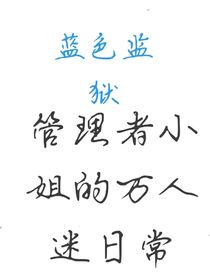 蓝色监
狱
管理者小
姐的万人
迷日常